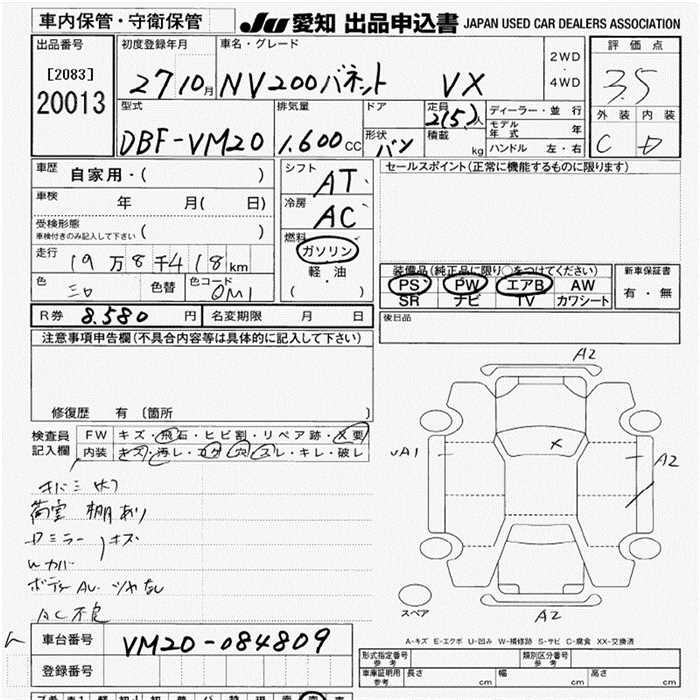 車内保管・守衛保管
JU 愛知 出品申込書 JAPAN USED CAR DEALERS ASSOCIATION
出品番号
[2083]
20013
初度登録年月
27 10月
車名・グレード
NV200バネット VX
2WD
・
4WD
評価点
3.5
外装 内装
C D
型式
DBF-VM20
排気量
1.600cc
ドア
形状
バン
定員
2(5)人
積載
kg
ディーラー・並行
モデル年式 年
ハンドル 左・右
車歴
自家用・( )
車検
年 月( 日)
受検形態
車検付きのみ記入して下さい ( )
走行
19万8千418km
色
色替
色コード
シフト
AT
冷房
AC
燃料
ガソリン
軽油
( )
セールスポイント(正常に機能するものに限ります)
装備品(純正品に限り○をつけてください)
PS PW エアB AW
SR ナビ TV カワシート
新車保証書
有・無
R券 8.580円
名変期限 月 日
後日品
注意事項申告欄(不具合内容等は具体的に記入して下さい)
修復歴 有〔箇所 〕
検査員
記入欄
FW キズ・飛石・ヒビ割・リペア跡・X要
内装 キズ・汚レ・コゲ・穴・スレ・キレ・破レ
荷室 棚あり
ドミラー キズ
Wカバ
ボディAU ツヤなし
AC不良
A2
A1
A2
A2
X
スペア
A-キズ E-エクボ U-凹み W-補修跡 S-サビ C-腐食 XX-交換済
車台番号 VM20-084809
登録番号
形式指定番号
参考
類別区分番号
参考
車庫証明用
参考
長さ
cm
幅
cm
高さ
cm